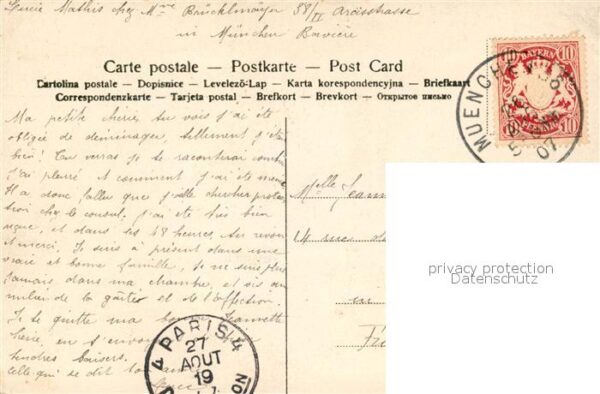 Lucie Mathis chez Mme Brücklmaier 58/II Arcisstrasse
in München Bavière
Carte postale — Postkarte — Post Card
Cartolina postale — Dopisnice — Levelező-Lap — Karta korespondencyjna — Briefkaart
Correspondenzkarte — Tarjeta postal — Brefkort — Brevkort — Открытое письмо
BAYERN
10 10
10 10
PFENNIG
MUENCHEN
07
Ma petite chérie, tu vois j'ai été
obligée de déménager, tellement j'étais
bien! Tu verras je te raconterai
j'ai pleuré et comment j'ai été
Il a donc fallu que j'aille chercher protec
tion chez le consul. J'ai été très bien
reçue, et dans les 48 heures,
et merci. Je suis à présent dans une
vraie et bonne famille, je ne suis plus
jamais dans ma chambre, et vis au
milieu de la gaîté et de l'affection.
Je te quitte ma Jeannette
chérie, en t'envoyant
tendres baisers.
Celle qui se dit ton
Lucie
Melle Jeann
14 rue
in
PARIS 4
27
AOUT
19
privacy protection
Datenschutz